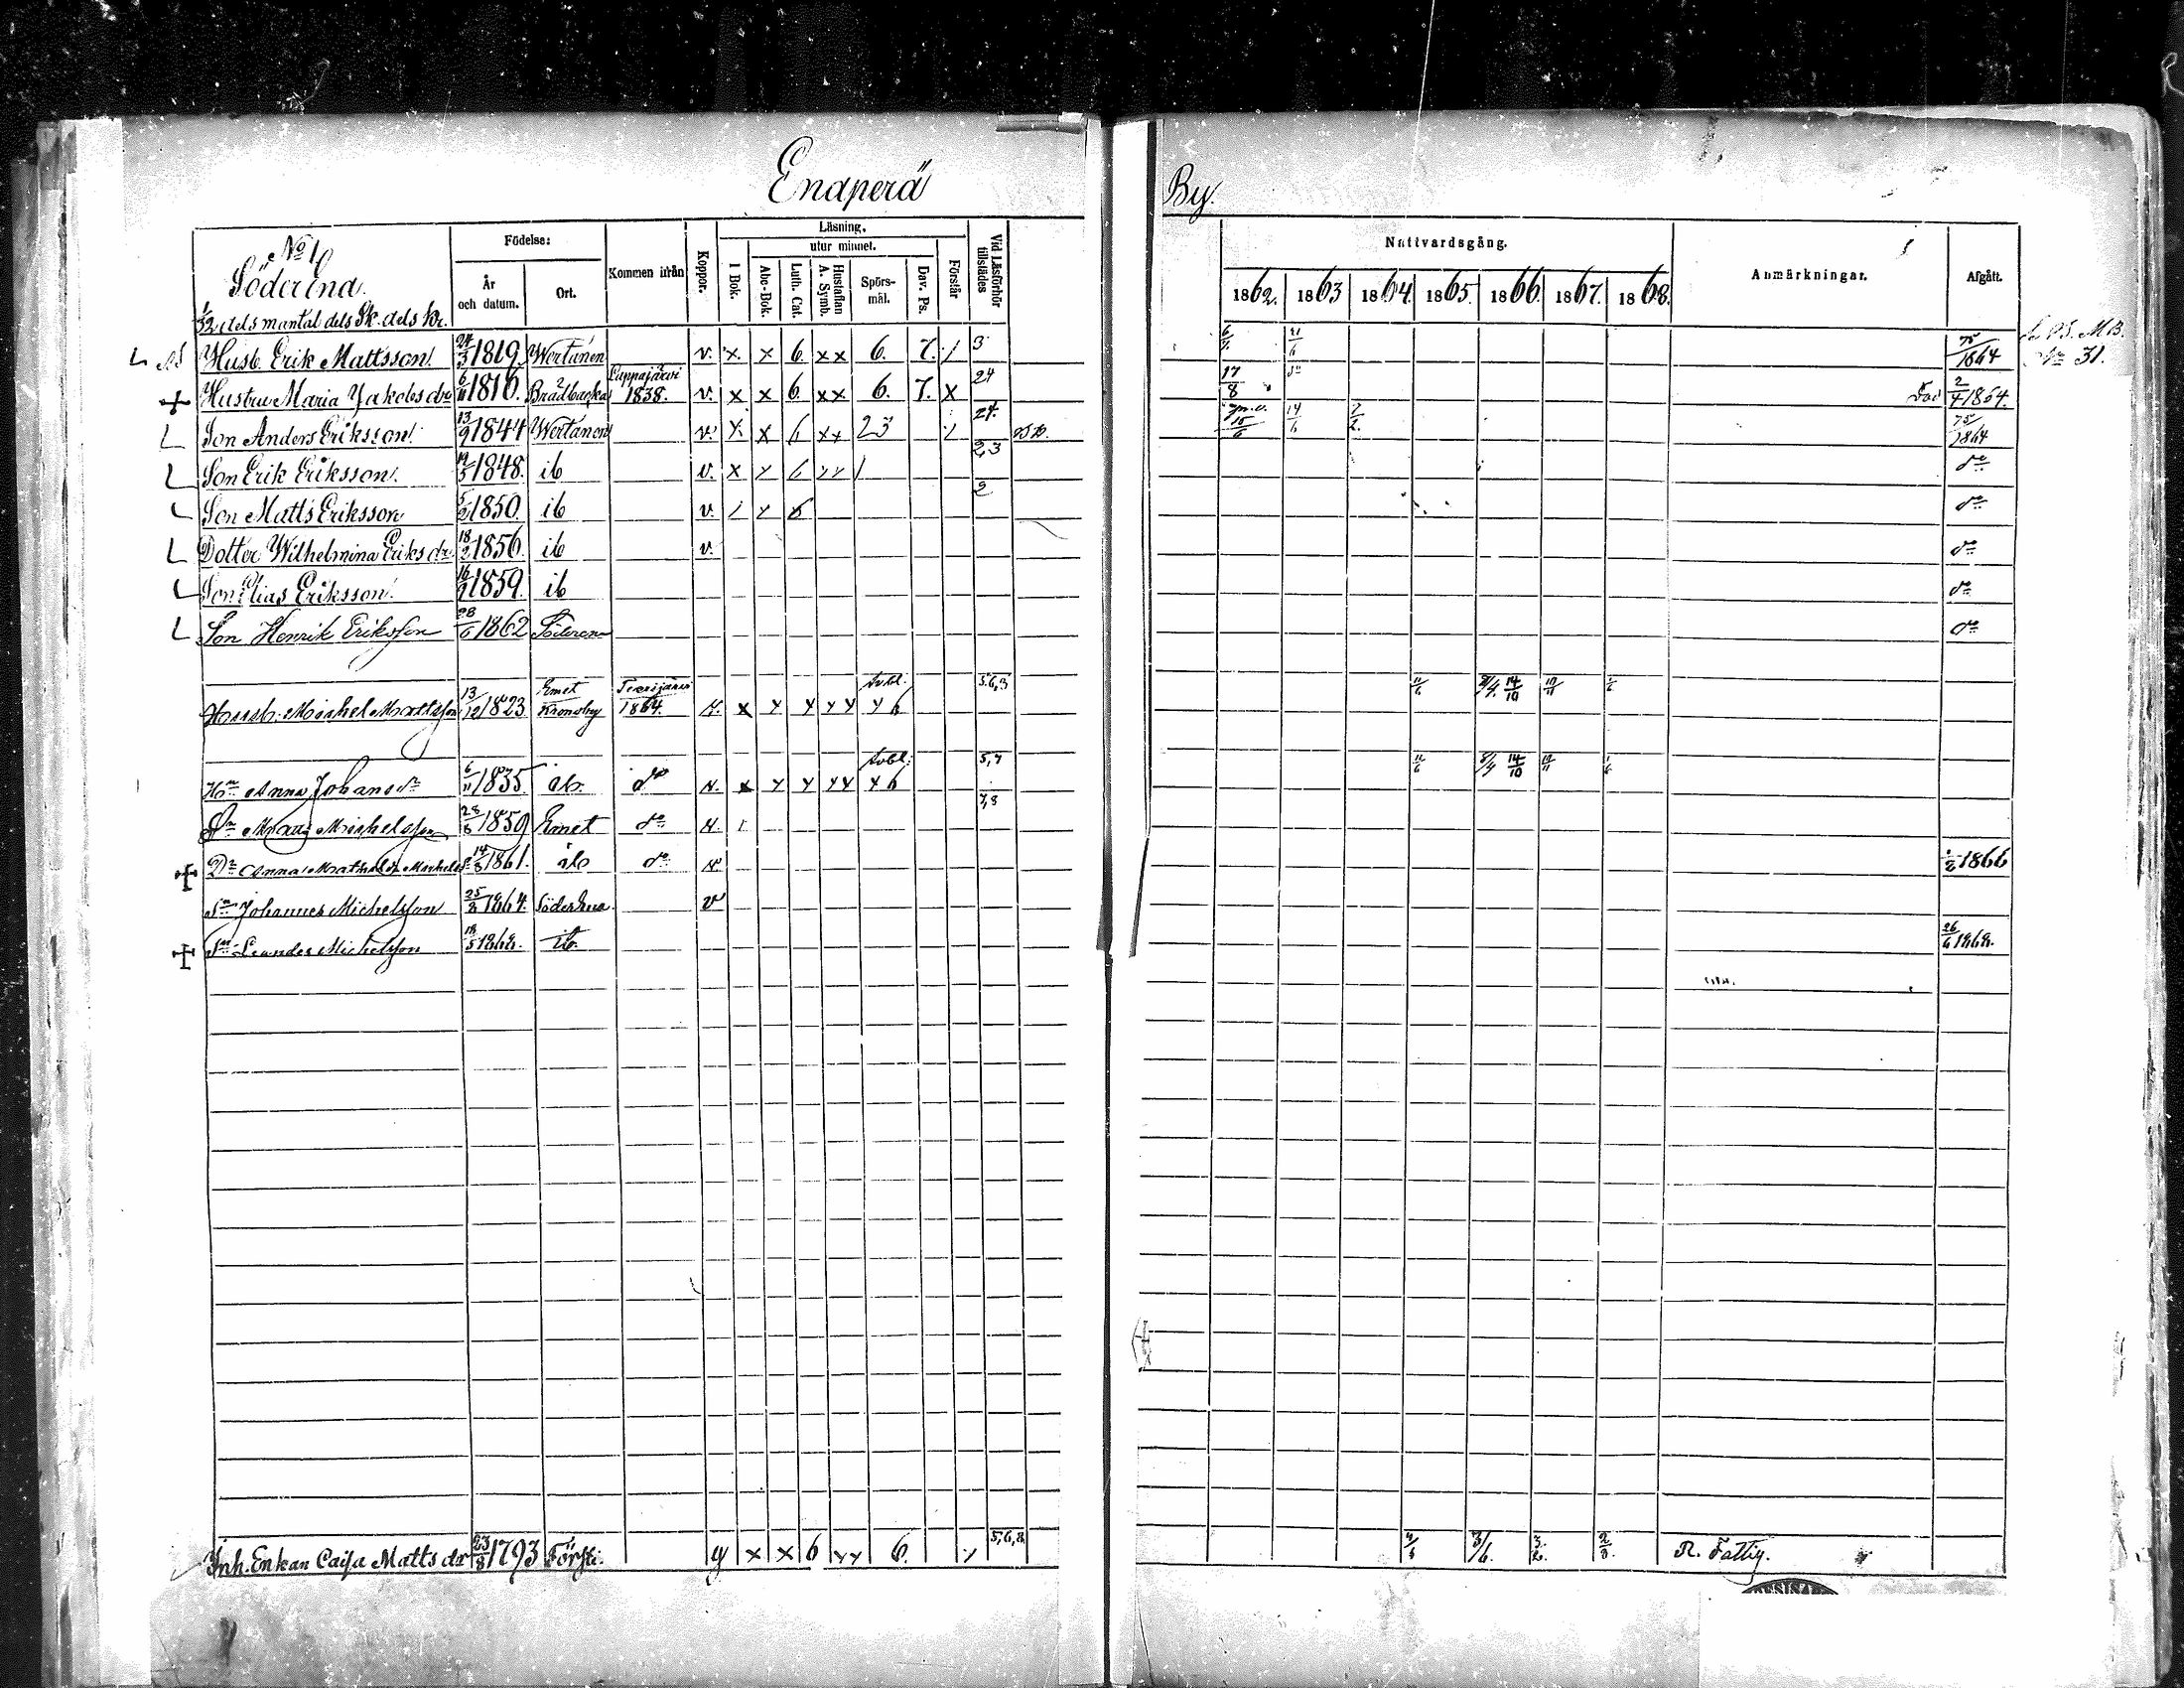 Enaperä By.
No 1
Söder Ena.
1/32 dels mantal dels Sk. dels Kr.
Födelse:
År och datum.
Ort.
Kommen ifrån
Koppor.
Läsning.
I Bok.
utur minnet.
Abc-Bok.
Luth. Cat.
Hustaflan A. Symb.
Spörsmål.
Dav. Ps.
Förstår
Vid Läsförhör tillstädes
Nattvardsgång.
1862. 1863 1864. 1865. 1866. 1867. 1868.
Anmärkningar.
Afgått.
Husb. Erik Mattsson 24/3 1819. Wertänen v. x x 6. xx 6. 7. / 3 6/4 21/6 75/1864 No 31.
Hustru Maria Jakobs dr 6/11 1816. Brådbacka Lappajärvi 1838. v. x x 6. xx 6. 7. x 24 17/8 do Död 2/4 1864.
Son Anders Eriksson 13/9 1844 Wertänen v. x x 6 xx 23 / 24. 14/6 7/2. 75/1864
Son Erik Eriksson. 1848. ib v. x x 6 xx / 2,3 do
Son Matts Eriksson 1850. ib v. / x 6 2 do
Dotter Wilhelmina Eriks dr 18/2 1856. ib v. do
Son Elias Eriksson. 16/9 1859. ib do
Son Henrik Eriksson 28/6 1862 Söderena do
Husb. Michel Mattsson 13/12 1823. Emet Kronoby Terijärvi 1864. x x x x x x 6 5.6,3 11/6 14/10
Hn Anna Johans dr 6/11 1835. ib. do x x x xx x 6 5,7 11/6 14/10
Sn Matts Michelsson 28/6 1859 Emet do 7,8
Dr Anna Mathilda Michels dr 14/3 1861. ib do 1/2 1866
Sn Johannes Michelsson 25/8 1864. Söder Ena v
Sn Leander Michelsson 18/5 1868. ib. 26/6 1868.
Inh. Enkan Cajsa Matts dr 23/8 1793 Försti. y x x 6 xx 6. / 5,6,8 3/6. 2/8. R. Fattig.